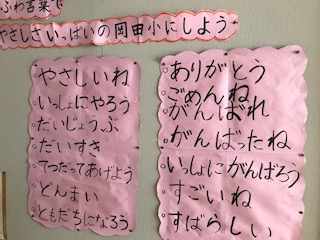 ふわ言葉で
やさしさいっぱいの岡田小にしよう
やさしいね
いっしょにやろう
だいじょうぶ
だいすき
てつだってあげよう
どんまい
ともだちになろう
ありがとう
ごめんね
がんばれ
がんばったね
いっしょにがんばろう
すごいね
すばらしい